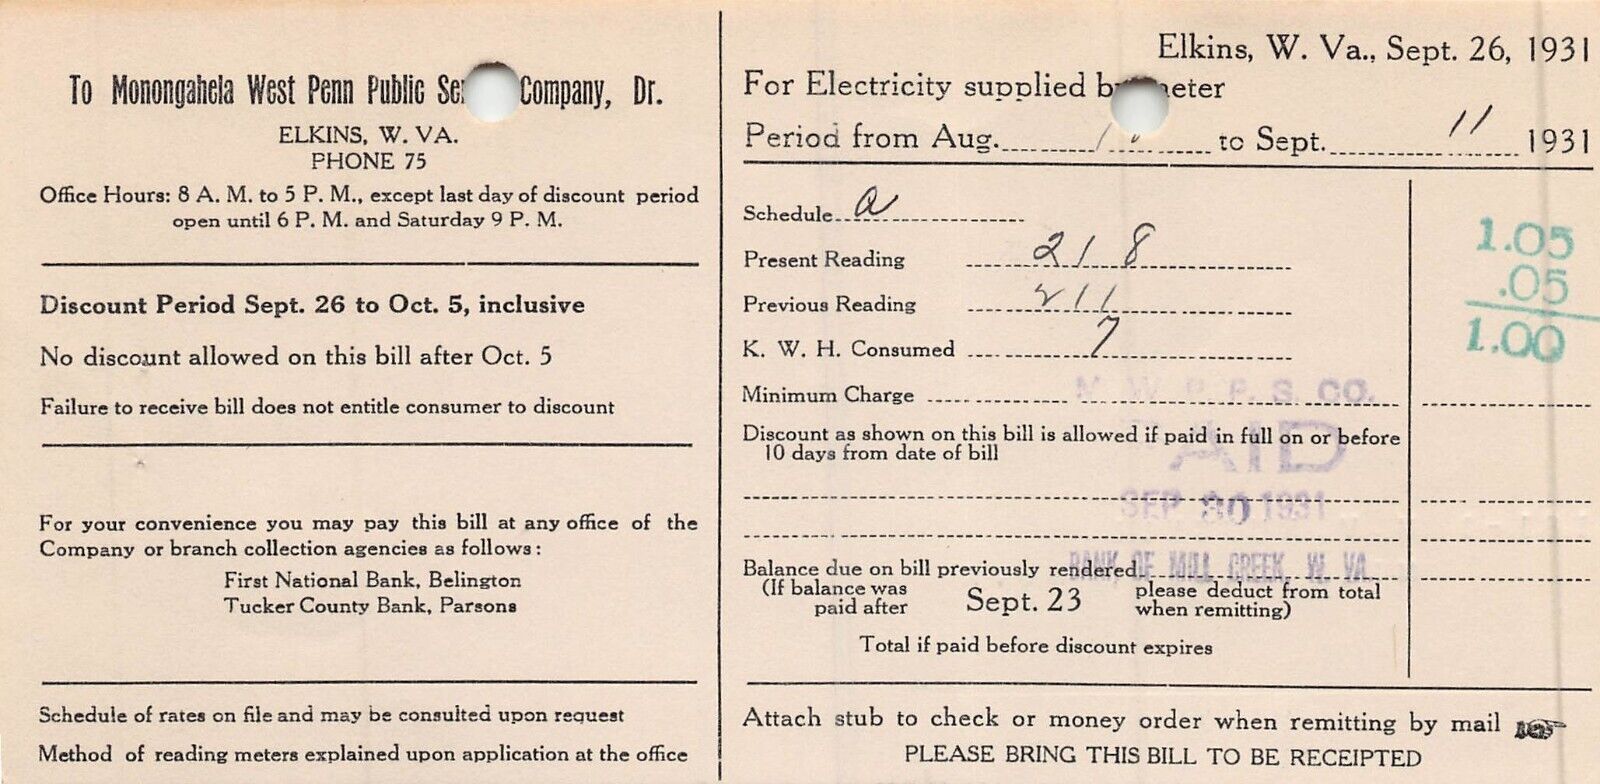 To Monongahela West Penn Public Company, Dr.
ELKINS, W. VA.
PHONE 75
Office Hours: 8 A. M. to 5 P. M., except last day of discount period
open until 6 P. M. and Saturday 9 P. M.
Discount Period Sept. 26 to Oct. 5, inclusive
No discount allowed on this bill after Oct. 5
Failure to receive bill does not entitle consumer to discount
For your convenience you may pay this bill at any office of the
Company or branch collection agencies as follows:
First National Bank, Belington
Tucker County Bank, Parsons
Schedule of rates on file and may be consulted upon request
Method of reading meters explained upon application at the office
Elkins, W. Va., Sept. 26, 1931
For Electricity supplied by meter
Period from Aug. to Sept. 11 1931
Schedule a
Present Reading 218
Previous Reading 211
K. W. H. Consumed 7
1.05
.05
1.00
Minimum Charge
M. W. P. P. S. CO.
Discount as shown on this bill is allowed if paid in full on or before
10 days from date of bill
PAID
SEP 30 1931
BANK OF MILL CREEK, W. VA.
Balance due on bill previously rendered
(If balance was paid after Sept. 23 please deduct from total when remitting)
Total if paid before discount expires
Attach stub to check or money order when remitting by mail
PLEASE BRING THIS BILL TO BE RECEIPTED